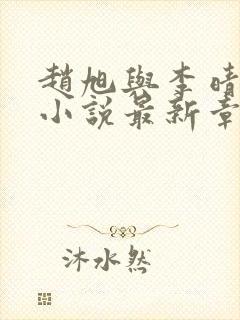 趙旭與李晴
小說最新章
沐水然